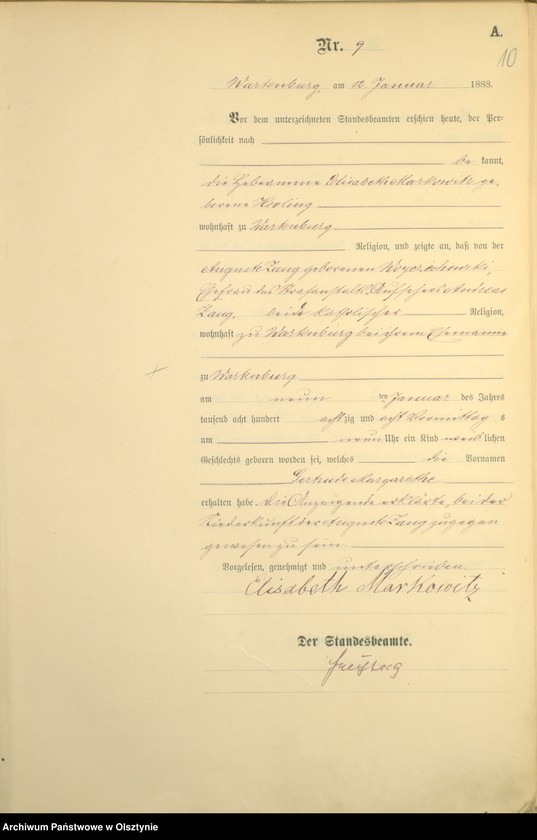 A.
10
Nr. 9
Wartenburg, am 12. Januar 1888.
Vor dem unterzeichneten Standesbeamten erschien heute, der Per-
sönlichkeit nach
be kannt,
die Hebamme Elisabeth Markowitz ge-
borene
wohnhaft zu Wartenburg
Religion, und zeigte an, daß von der
Auguste Zang geborenen
Ehefrau des Strafanstalts-Aufsehers Andreas
Zang, beide katholischer Religion,
wohnhaft zu Wartenburg bei ihrem Ehemanne
zu Wartenburg
am neun ten Januar des Jahres
tausend acht hundert achtzig und acht Vormittags
um neun Uhr ein Kind weiblichen
Geschlechts geboren worden sei, welches die Vornamen
Gertrude Margarethe
erhalten habe. Die Anzeigende erklärte, bei der
Niederkunft der Auguste Zang zugegen
gewesen zu sein.
Vorgelesen, genehmigt und unterschrieben.
Elisabeth Markowitz
Der Standesbeamte.
Archiwum Państwowe w Olsztynie